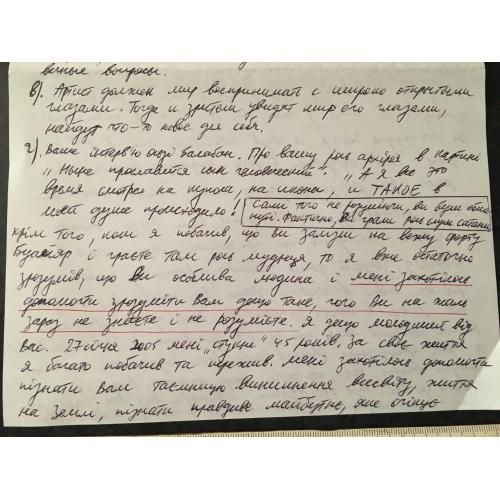 вечные вопросы.
в). Артист должен мир воспринимать с широко открытыми
глазами. Тогда и зрители увидят мир его глазами,
найдут что-то новое для себя.
г). Ваше інтерв'ю Балабан. Про вашу роль архірея в картині
„Ныне прославится сын человеческий". „А я все это
время смотрел на купола, на иконы, и ТАКОЕ в
моей душе происходило! Самі того не розуміючи, ви були
Фактично, Ви грали роль слуги сатани
Крім того, коли я побачив, що ви залізли на вежу форту
Буайяр і граєте там роль мудреця, то я вже остаточно
зрозумів, що Ви особлива людина і мені захотілось
допомогти зрозуміти Вам дещо таке, чого Ви на жаль
зараз не знаєте і не розумієте. Я дещо молодший від
Вас. 27 січня 2005 мені „стукне" 45 років. За своє життя
я багато побачив та пережив. Мені захотілось допомогти
пізнати Вам таємницю виникнення всесвіту, життя
на Землі, пізнати правдиве майбутнє, яке очікує